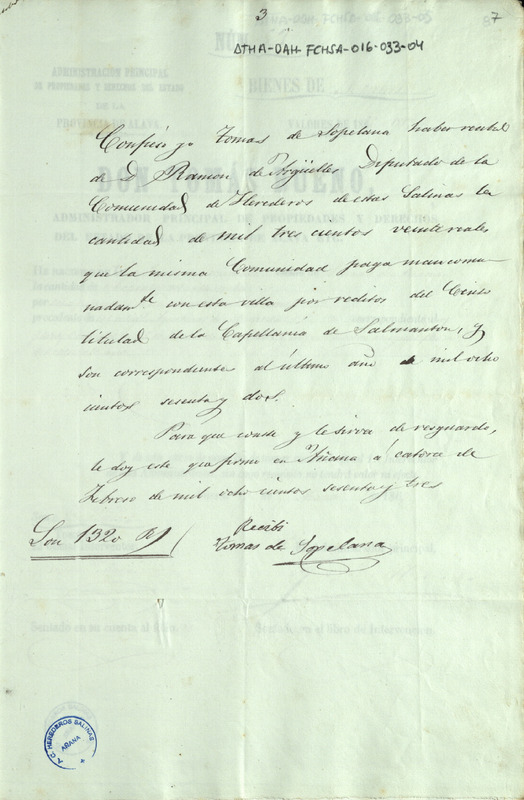 3
87
DTHA-DAH-FCHSA-016-033-04
ADMINISTRACION PRINCIPAL
DE PROPIEDADES Y DERECHOS DEL ESTADO
DE LA
PROVINCIA DE ALAVA
BIENES DE
VALORES DE 186
Confieso yo Tomas de Sopelana haber recibi
do de D Ramon de Argüelles Deputado de la
Comunidad de Herederos de estas Salinas la
cantidad de mil tres cientos veinte reales
que la misma Comunidad paga mancomu
nadamte con esta villa por reditos del Censo
titulad de la Capellania de Salmanton, y
son correspondientes al último año de mil ocho
cientos sesenta y dos.
Para que conste y le sirva de resguardo,
le doy este que firmo en Añana á catorce de
Febrero de mil ocho cientos sesenta y tres
Son 1320 rs
Recibi
Tomas de Sopelana
DON TOMÁS BUENO,
ADMINISTRADOR PRINCIPAL DE PROPIEDADES Y DERECHOS
Sentado en su cuenta al folio
Sentado en el libro de Intervencion
C. HEREDEROS SALINAS
AÑANA